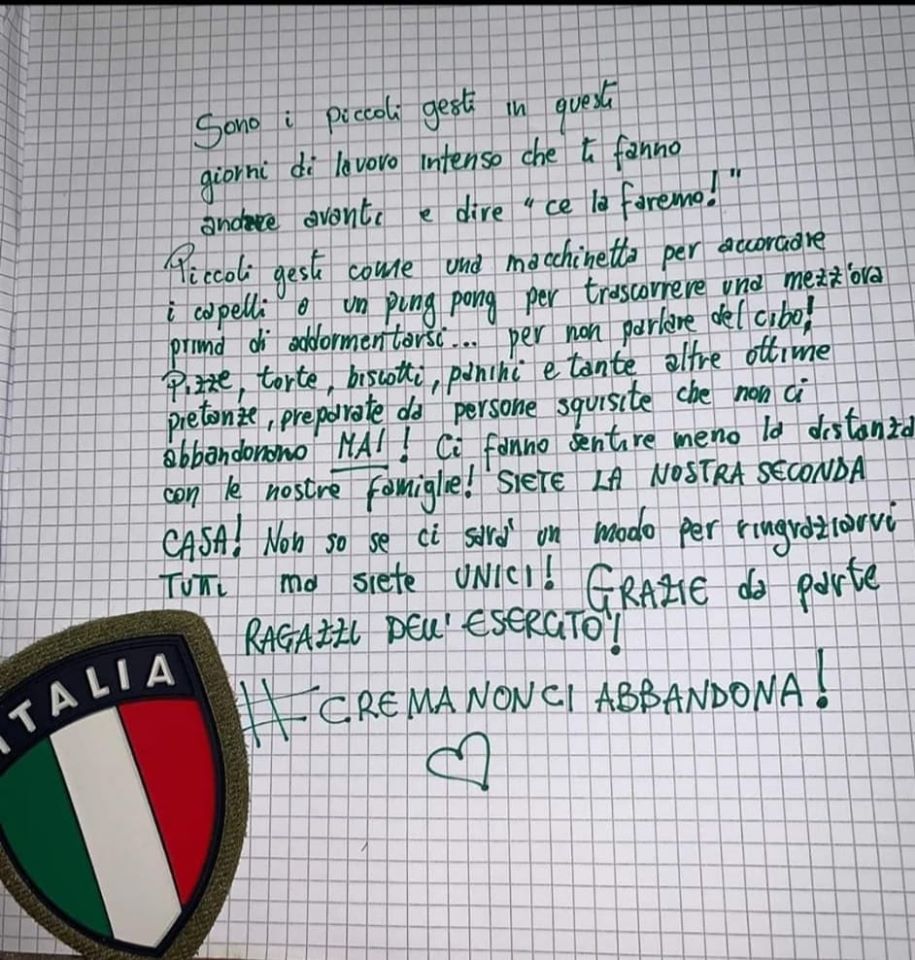 Sono i piccoli gesti in questi
giorni di lavoro intenso che ti fanno
andare avanti e dire "ce la faremo!"
Piccoli gesti come una macchinetta per accorciare
i capelli o un ping pong per trascorrere una mezz'ora
prima di addormentarsi... per non parlare del cibo!
Pizze, torte, biscotti, panini e tante altre ottime
pietanze, preparate da persone squisite che non ci
abbandonano MAI! Ci fanno sentire meno la distanza
con le nostre famiglie! SIETE LA NOSTRA SECONDA
CASA! Non so se ci sarà un modo per ringraziarvi
TUTTI ma siete UNICI! GRAZIE da parte
RAGAZZI DELL'ESERCITO!
#CREMANONCIABBANDONA!
ITALIA